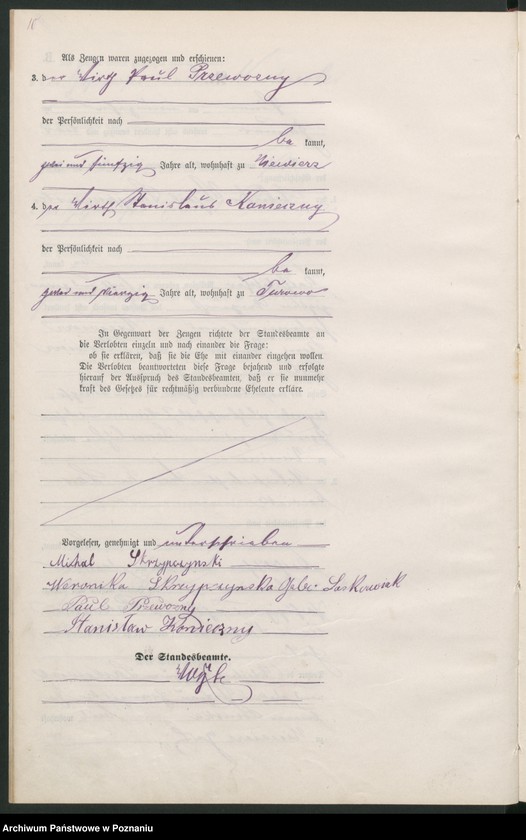 16
Als Zeugen waren zugezogen und erschienen:
3. der Wirth Paul Przewozny
der Persönlichkeit nach
be kannt,
zwei und fünfzig Jahre alt, wohnhaft zu
4. der Wirth Stanislaus Konieczny
der Persönlichkeit nach
be kannt,
und vierzig Jahre alt, wohnhaft zu Turowo
In Gegenwart der Zeugen richtete der Standesbeamte an
die Verlobten einzeln und nach einander die Frage:
ob sie erklären, daß sie die Ehe mit einander eingehen wollen.
Die Verlobten beantworteten diese Frage bejahend und erfolgte
hierauf der Ausspruch des Standesbeamten, daß er sie nunmehr
kraft des Gesetzes für rechtmäßig verbundene Eheleute erkläre.
Vorgelesen, genehmigt und unterschrieben
Michal Skrzypczynski
Weronika Skrzypczynska geb.
Paul Przewozny
Stanisław Konieczny
Der Standesbeamte.
Archiwum Państwowe w Poznaniu